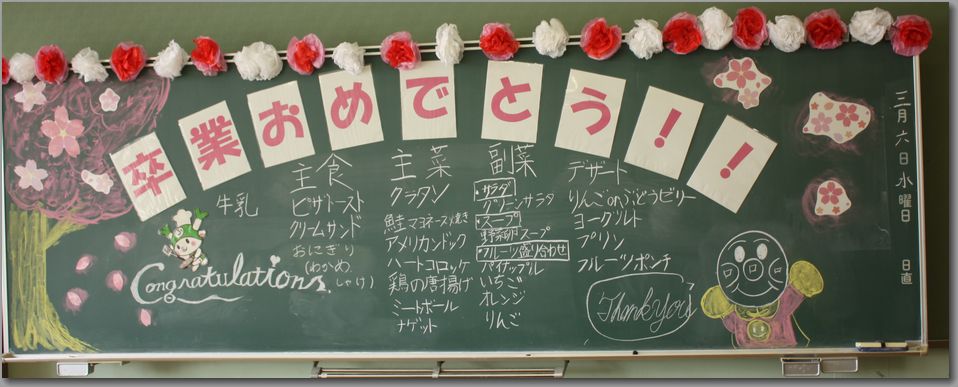 卒業おめでとう!!
三月六日水曜日
日直
牛乳
主食
ピザトースト
クリームサンド
おにぎり
(わかめ
しゃけ)
主菜
グラタン
鮭マヨネーズ焼き
アメリカンドック
ハートコロッケ
鶏の唐揚げ
ミートボール
ナゲット
副菜
・サラダ
グリーンサラダ
・スープ
野菜卵スープ
・フルーツ盛り合わせ
パイナップル
いちご
オレンジ
りんご
デザート
りんごonぶどうゼリー
ヨーグルト
プリン
フルーツポンチ
Congratulations
Thank You